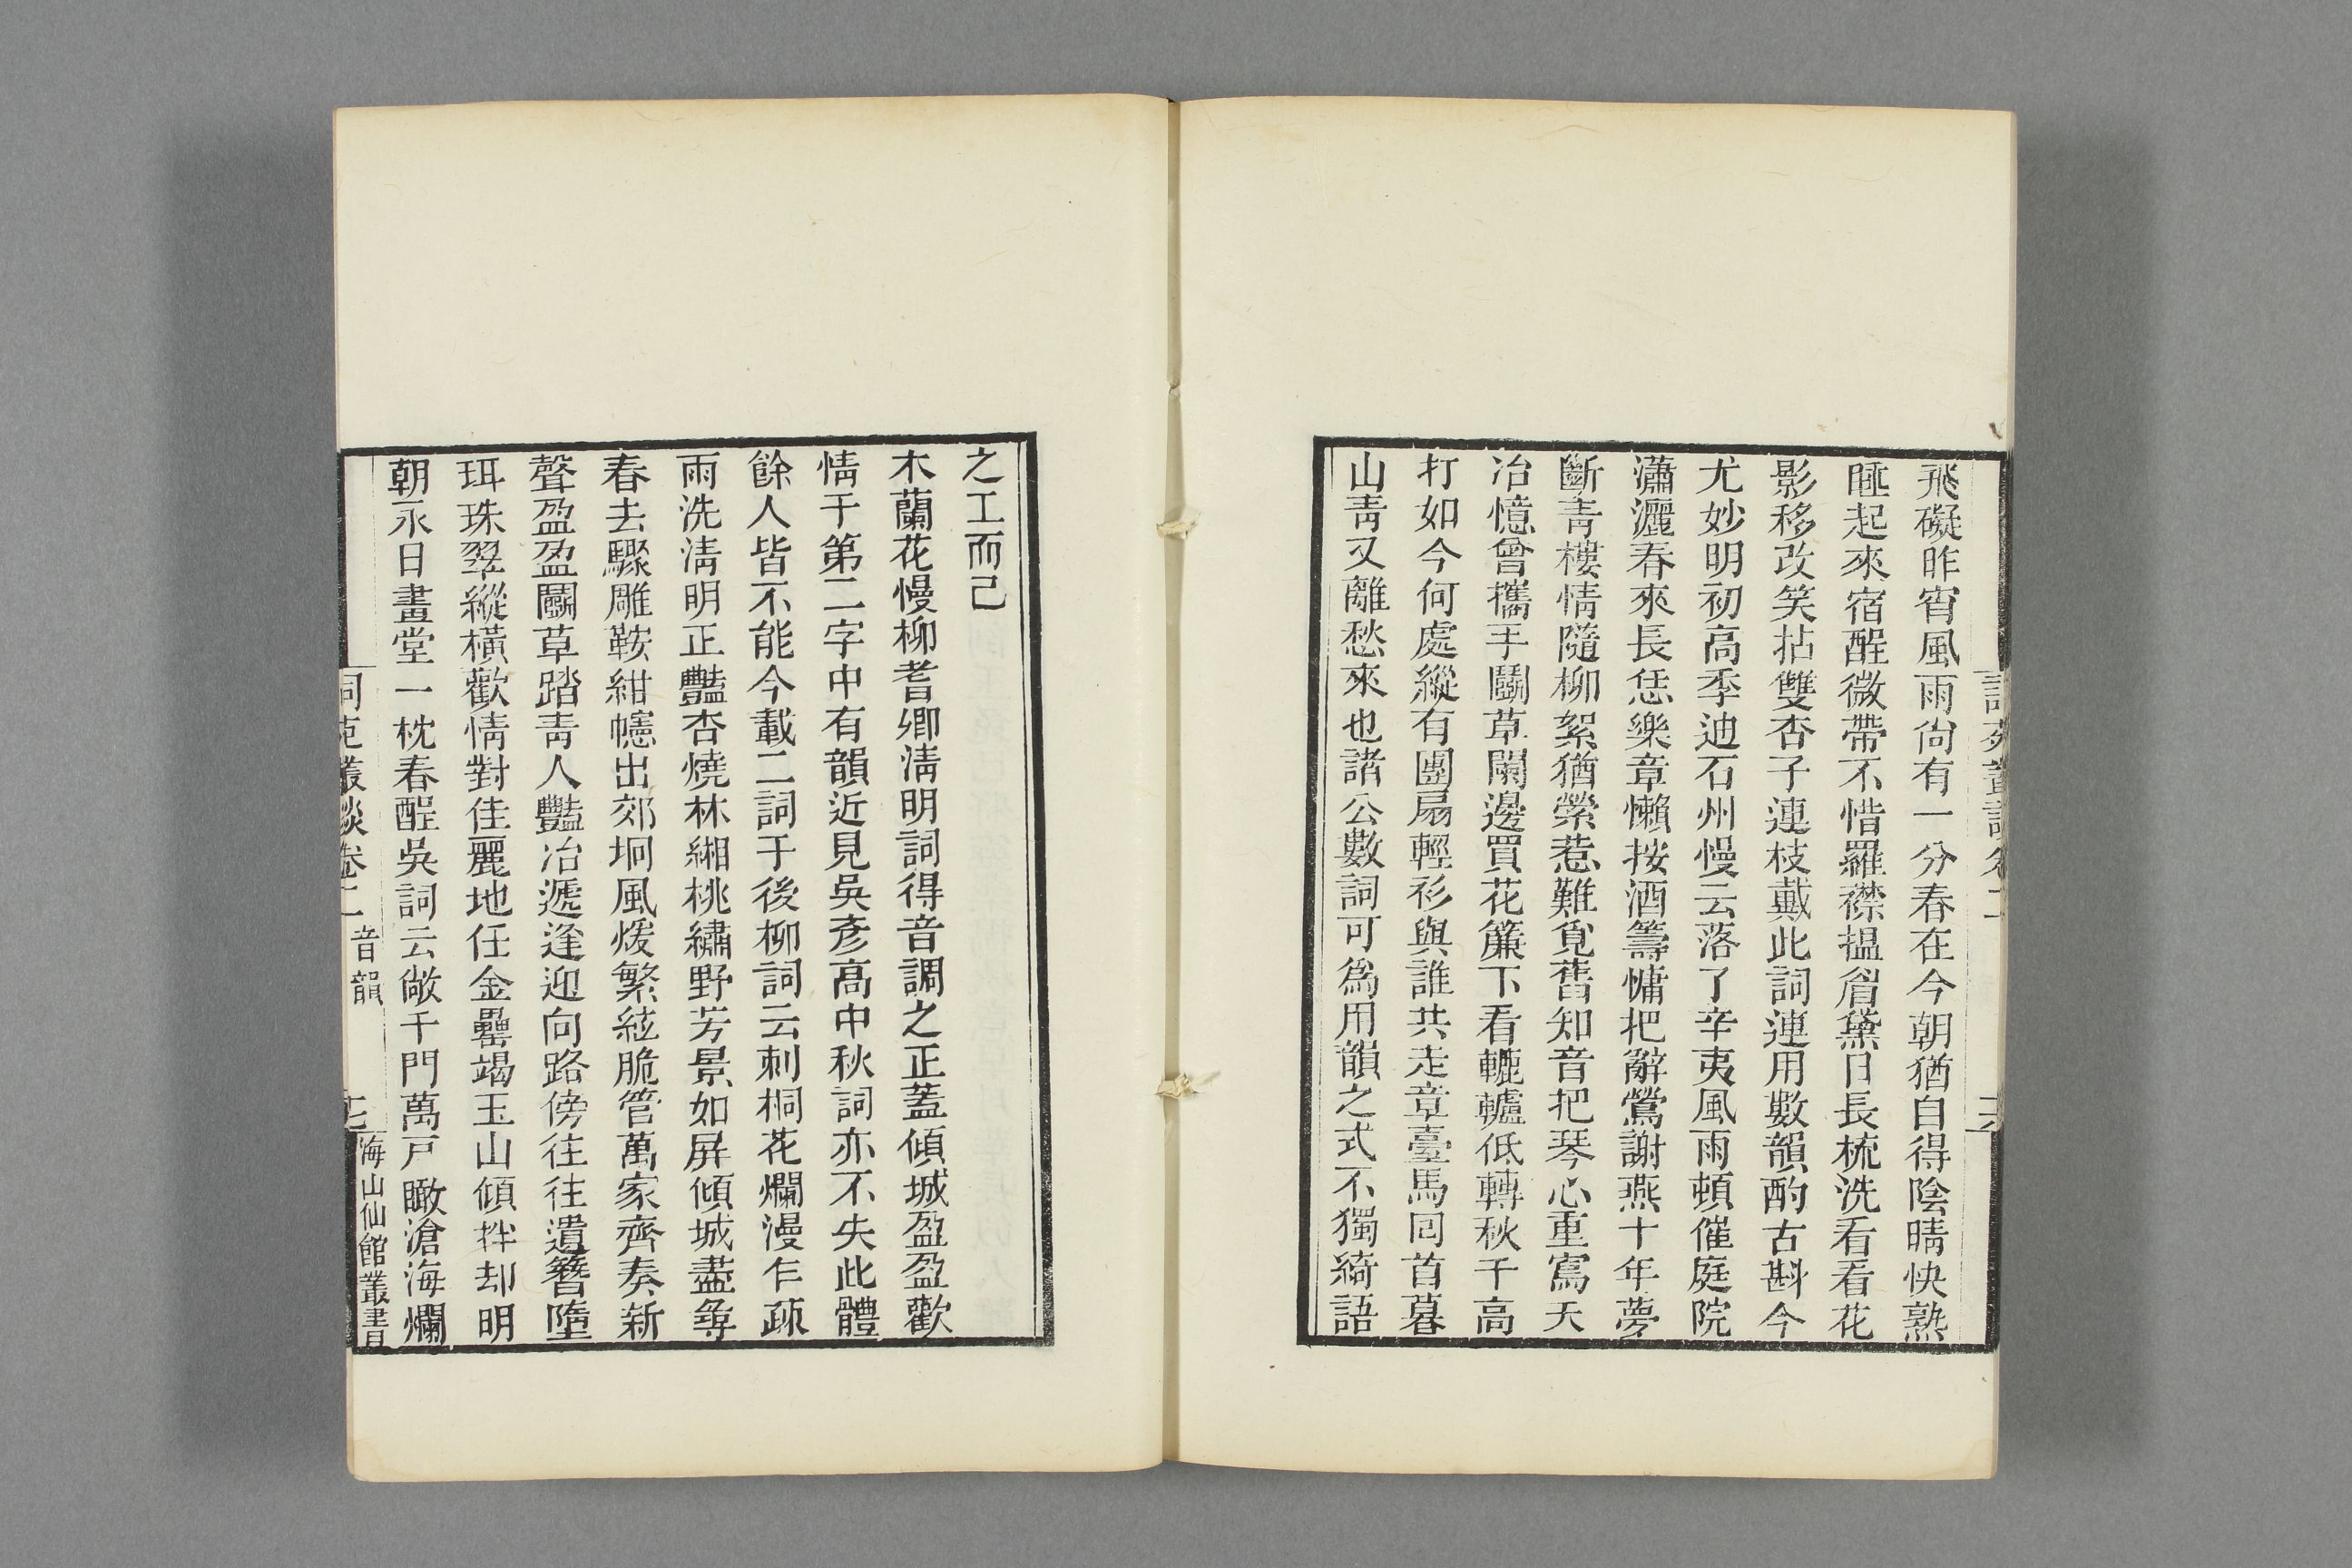 飛礙昨宵風雨尙有一分春在今朝猶自得陰晴快熟
睡起來宿酲微帶不惜羅襟搵眉黛日長梳洗看看花
影移改笑拈雙杏子連枝戴此詞連用數韻酌古斟今
尤妙明初高季迪石州慢云落了辛夷風雨頓催庭院
瀟灑春來長恁樂章懶按酒籌慵把辭鶯謝燕十年夢
斷靑樓情隨柳絮猶縈惹難覓舊知音把琴心重寫夭
冶憶曾攜手鬭草闌邊買花簾下看轆轤低轉秋千高
打如今何處縱有團扇輕衫與誰共走章臺馬囘首暮
山靑又離愁來也諸公數詞可爲用韻之式不獨綺語
之工而已
木蘭花慢柳耆卿淸明詞得音調之正蓋傾城盈盈歡
情于第二字中有韻近見吳彥高中秋詞亦不失此體
餘人皆不能今載二詞于後柳詞云刺桐花爛漫乍疎
雨洗淸明正豔杏燒林緗桃繡野芳景如屏傾城盡尋
春去驟雕鞍紺幰出郊坰風煖繁絃脆管萬家齊奏新
聲盈盈鬭草踏靑人豔冶遞逢迎向路傍往往遺簪墮
珥珠翠縱橫歡情對佳麗地任金罍竭玉山傾拌却明
朝永日畫堂一枕春酲吳詞云敞千門萬戸瞰滄海爛
詞苑叢談卷二 音韻 七 海山仙館叢書